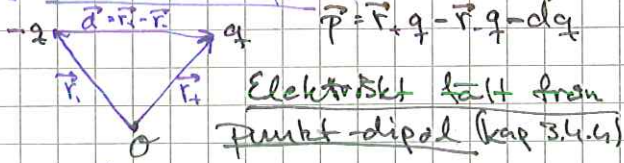 -q d⃗ = r⃗₊ - r⃗₋ q p⃗ = r⃗₊ q - r⃗₋ q - dq
r⃗₋ r⃗₊ Elektriskt fält från
O punkt-dipol (kap 3.4.4)